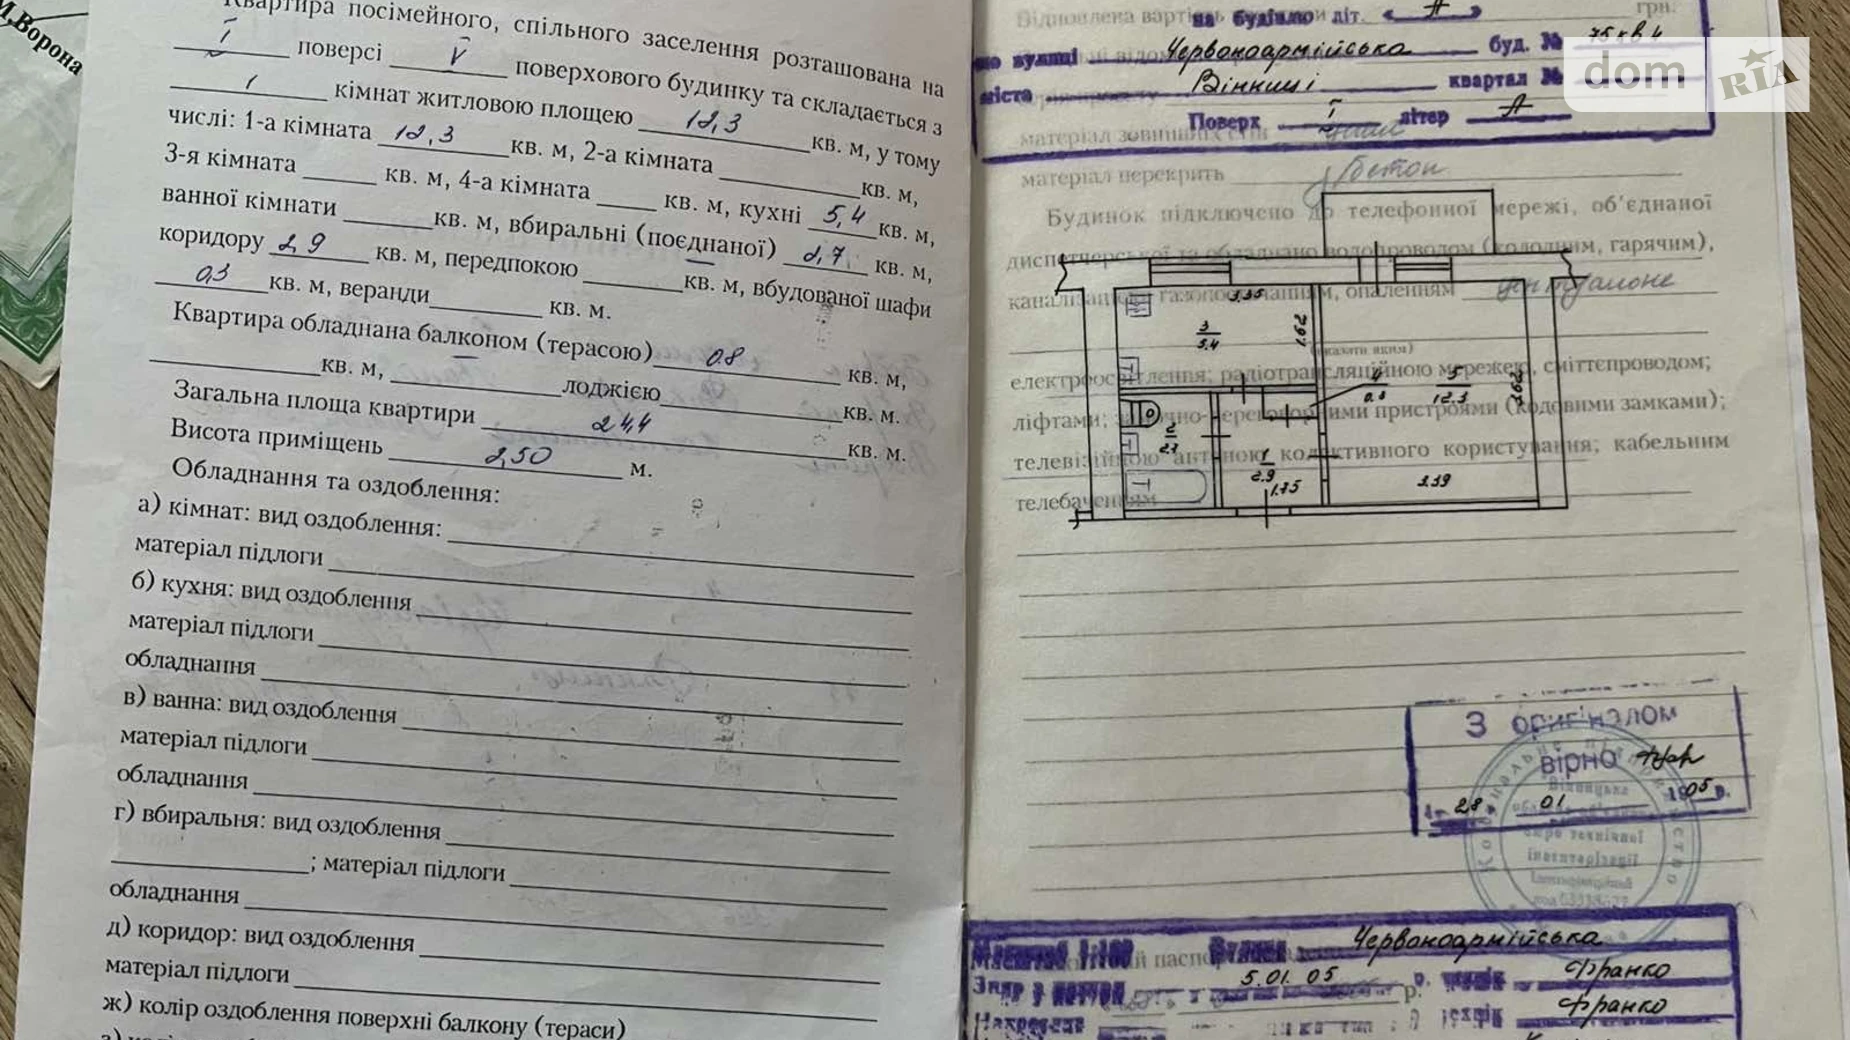 И.Ворона
Квартира посімейного, спільного заселення розташована на
І поверсі V поверхового будинку та складається з
1 кімнат житловою площею 12,3 кв. м, у тому
числі: 1-а кімната 12,3 кв. м, 2-а кімната кв. м,
3-я кімната кв. м, 4-а кімната кв. м, кухні 5,4 кв. м,
ванної кімнати кв. м, вбиральні (поєднаної) 2,7 кв. м,
коридору 2,9 кв. м, передпокою кв. м, вбудованої шафи
0,3 кв. м, веранди кв. м.
Квартира обладнана балконом (терасою) 0.8 кв. м,
кв. м, лоджією кв. м.
Загальна площа квартири 24,4 кв. м.
Висота приміщень 2,50 м.
Обладнання та оздоблення:
а) кімнат: вид оздоблення:
матеріал підлоги
б) кухня: вид оздоблення
матеріал підлоги
обладнання
в) ванна: вид оздоблення
матеріал підлоги
обладнання
г) вбиральня: вид оздоблення
; матеріал підлоги
обладнання
д) коридор: вид оздоблення
матеріал підлоги
ж) колір оздоблення поверхні балкону (тераси)
Відновлена вартість грн.
на будівлю літ. «А»
по вулиці Червоноармійська буд. № 75 кв 4
міста Вінниці квартал №
Поверх І літер А
dom RIA
матеріал зовнішніх стін
матеріал перекрить бетон
Будинок підключено до телефонної мережі, об'єднаної
диспетчерської та обладнано водопроводом (холодним, гарячим),
каналізацією, газопостачанням, опаленням
(вказати яким)
електроосвітлення; радіотрансляційною мережею, сміттєпроводом;
ліфтами; замочно-переговорними пристроями (кодовими замками);
телевізійною антеною колективного користування; кабельним
телебаченням
3.35
3
5.4
1.62
4
0.3
5
12.3
3.62
2
2.7
1
2.9
1.75
3.39
З оригіналом
вірно
28 01 1905 р.
Вінницьке
бюро технічної
інвентаризації
Масштаб 1:100 Вулиця Червоноармійська
5.01.05 р. Франко
Франко